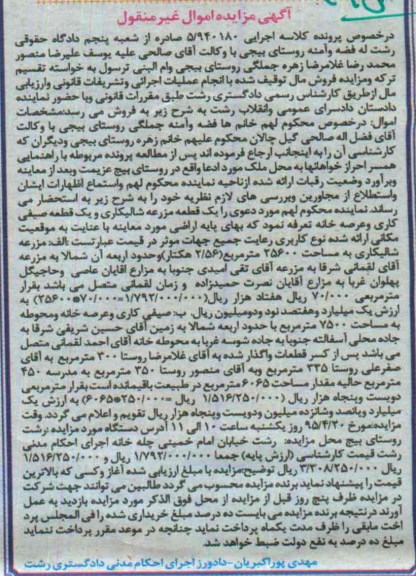 آگهی مزایده اموال غیر منقول
درخصوص پرونده کلاسه اجرایی ۵/۹۴۰۱۸۰ صادره از شعبه پنجم دادگاه حقوقی
رشت له فضه وآمنه روستای بیجی با وکالت آقای صالحی علیه یوسف علیرضا منصور
محمد رضا غلامرضا زهره جملگی روستای بیجی وام البنی ترسول به خواسته تقسیم
ترکه ومزایده فروش مال توقیف شده با انجام عملیات اجرائی وتشریفات قانونی وارزیابی
مال ازطریق کارشناس رسمی دادگستری رشت طبق مقررات قانونی وبا حضور نماینده
دادستان دادسرای عمومی وانقلاب رشت به شرح زیر به فروش می رسد:مشخصات
اموال: درخصوص محکوم لهم خانم ها فضه وآمنه جملگی روستای بیجی با وکالت
آقای فضل اله صالحی گیل چالان محکوم علیهم خانم زهره روستای بیجی ودیگران که
کارشناسی آن را به اینجانب ارجاع فرموده اند پس از مطالعه پرونده مربوطه با راهنمایی
همسر احراز خواهانها به محل ملک مورد ادعا واقع در روستای بیج عزیمت وبعد از معاینه
وبرآورد وضعیت رقبات ارائه شده ازناحیه نماینده محکوم لهم واستماع اظهارات ایشان
واستطلاع از مجاورین وبررسی های لازم نظریه خود را به شرح زیر به استحضار می
رساند. نماینده محکوم لهم مورد دعوی را یک قطعه مزرعه شالیکاری و یک قطعه صیفی
کاری وعرصه خانه تعرفه نمود که بهای پایه اراضی مورد معاینه با عنایت به موقعیت
مکانی ارائه شده نوع کاربری رعایت جمیع جهات موثر در قیمت عبارتست :الف: مزرعه
شالیکاری به مساحت ۲۵۶۰۰ مترمربع(۲/۵۶ هکتار)وحدود اربعه آن شمالا به مزرعه
آقای لقمانی شرقا به مزرعه آقای تقی اسیدی جنوبا به مزارع اقایان عاصی وحاجیگل
پهلوان غربا به مزارع آقایان نصرت حمیدزاده و زمان لقمانی متصل می باشد بقرار
مترمربعی ۷۰/۰۰۰ ریال هفتاد هزار ریال(۱/۷۹۲/۰۰۰/۰۰۰=۷۰/۰۰۰*۲۵۶۰۰) به
ارزش یک میلیارد وهفتصد نود ودومیلیون ریال. ب: صیفی کاری وعرصه خانه ومحوطه
به مساحت ۷۵۰۰ مترمربع با حدود اربعه شمالا به زمین آقای حسین شریفی شرقا به
جاده محلی آسفالته جنوبا به جاده شوسه غربا به محوطه خانه آقای احمد لقمانی متصل
می باشد پس از کسر قطعات واگذار شده به آقای غلامرضا روستا ۳۰۰ مترمربع به آقای
صفرعلی روستا ۳۳۵ مترمربع وبه آقای منصور روستا ۳۵۰ مترمربع به مدرسه ۴۵۰
مترمربع حالیه مقدار مساحت ۶۰۶۵ مترمربع در طبیعت باقیمانده است بقرار مترمربعی
دویست وپنجاه هزار ریال (۱/۵۱۶/۲۵۰/۰۰۰ ریال =۲۵۰/۰۰۰*۶۰۶۵) به ارزش یک
میلیارد وپانصد وشانزده میلیون ودویست وپنجاه هزار ریال تقویم و اعلام می گردد. وقت
مزایده:مورخ ۹۵/۴/۲۰ روز یکشنبه ساعت ۱۰ الی ۱۱ آدرس دستگاه مورد مزایده: رشت
روستای بیج محل مزایده: رشت خیابان امام خمینی چله خانه اجرای احکام مدنی
رشت قیمت کارشناسی (ارزش پایه) جمعا ۱/۷۹۲/۰۰۰/۰۰۰ ریال و ۱/۵۱۶/۲۵۰/۰۰۰
ریال ۳/۳۰۸/۲۵۰/۰۰۰ ریال توضیح:مزایده با مبلغ ارزیابی شده آغاز وکسی که بالاترین
قیمت را پیشنهاد نماید برنده مزایده محسوب می گردد طالبین می توانند جهت شرکت
در مزایده ظرف پنج روز قبل از مزایده از محل فوق الذکر مورد مزایده بازدید به عمل
آورند درنتیجه برنده مزایده می بایست ده درصد مبلغ خریداری شده را فی المجلس پرد
اخت مابقی را ظرف مدت یکماه پرداخت نماید چنانچه در موعد مقرر پرداخت ننماید
مبلغ ده درصد به نفع دولت ضبط خواهد شد.
مهدی پوراکبریان-دادورز اجرای احکام مدنی دادگستری رشت